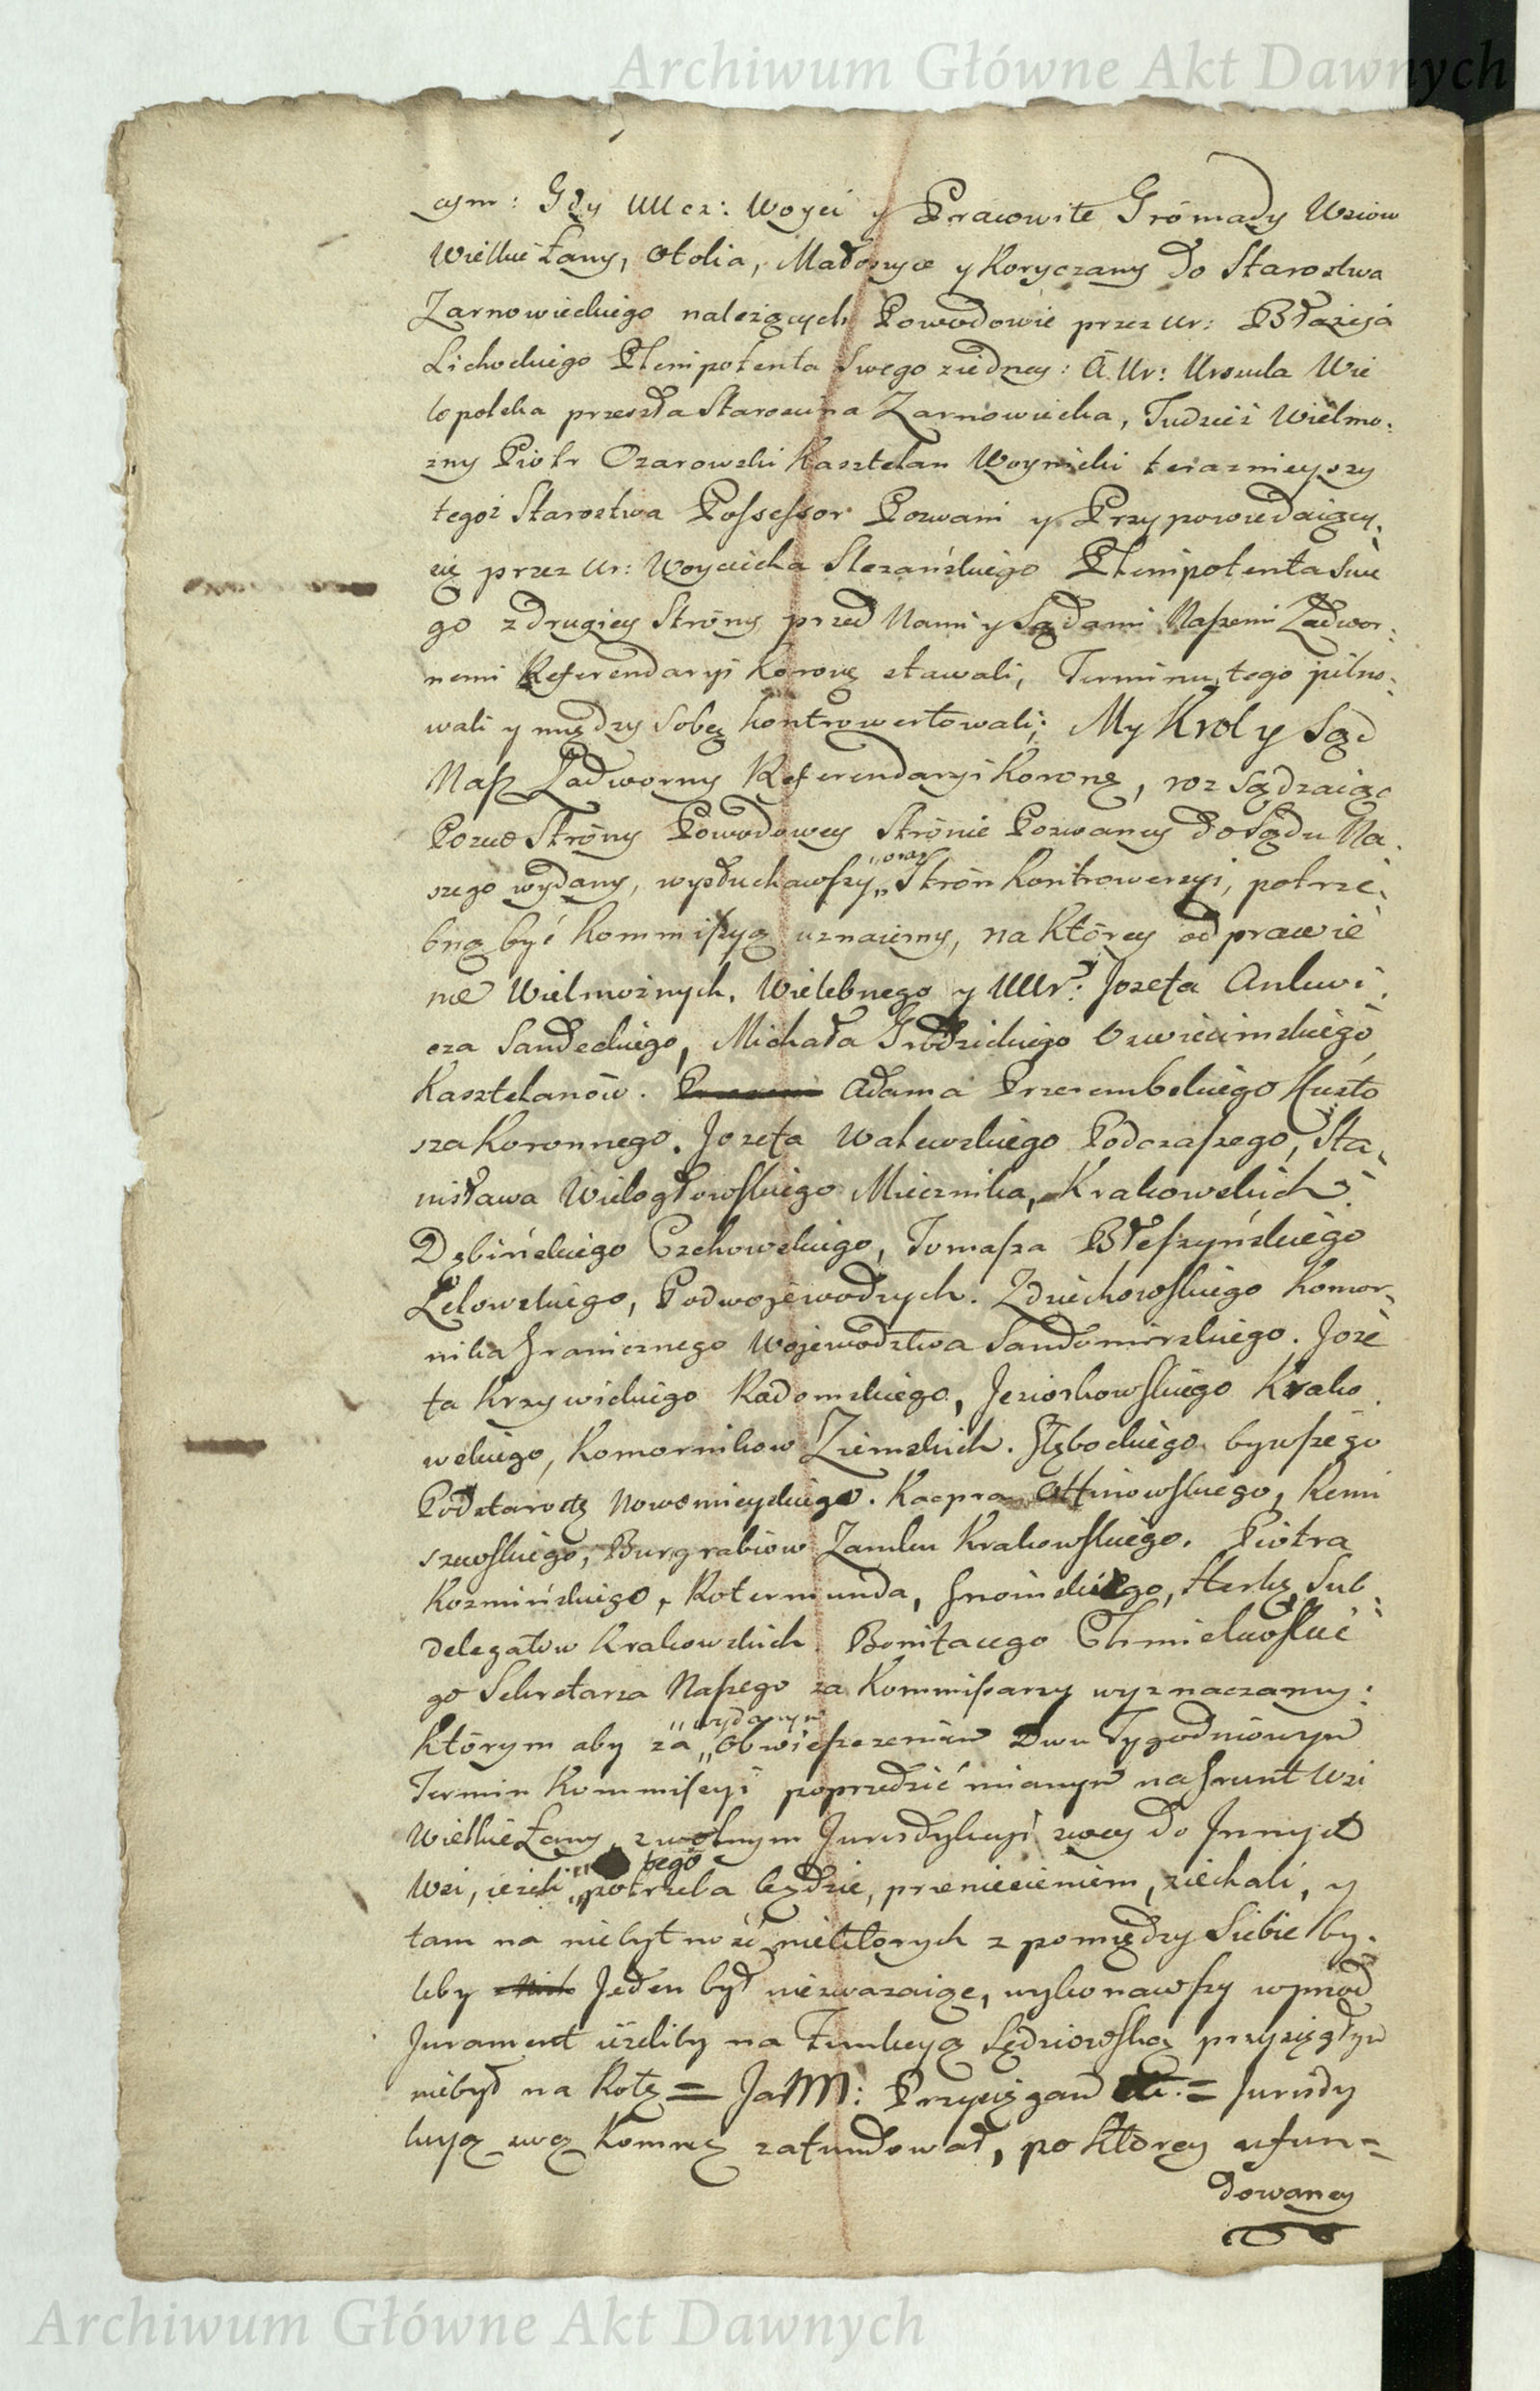 Archiwum Główne Akt Dawnych
cym: Gdy UUcz: Woyci y Pracowite Grómady Wsiow
Wielkie Łany, Otolia, Małoszyce y Koryczany do Starostwa
Zarnowieckiego należących Powodowie przez Ur: Błażeja
Lichockiego Plenipotenta Swego ziedney: A. Ur: Urszula Wie
lopolska przeszła Starościna Zarnowiecka, Tudzież Wielmo:
żny Piotr Ożarowski Kasztelan Woynicki teraznieyszy
tegoż Starostwa Possessor Pozwani y Przypowiedaiący
się przez Ur: Woyciecha Slezańskiego Plenipotenta Swe
go z drugiey Stróny przed Nami y Sądami Naszemi Zadwor:
nemi Referendaryi Koronę stawali, Terminu tego pilno:
wali y między Sobą kontrowertowali; My Krol y Sąd
Nasz Zadworny Referendaryi Koronę, rozsądzaiąc
Pozew Stróny Powodowey Strónie Pozwaney do Sądu Na:
szego wydany, wysłuchawszy „oraz„ Strón Kontrowersyi, potrze:
bną być Kommissyą uznaiemy, na którey odprawie
nie Wielmożnych, Wielebnego y UUr: Jozefa Ankwi:
cza Sandeckiego, Michała Grodzickiego Oswiecimskiego
Kasztelanów. Adama Przerembskiego Kusto
sza Koronnego. Jozefa Walewskiego Podczaszego, Sta:
nisława Wielogłowskiego Miecznika, Krakowskich.
Dębińskiego Czchowskiego, Tomasza Błeszyńskiego
Lelowskiego, Podwojewodzych. Zdziechowskiego Komor:
nika Granicznego Województwa Sandomirskiego. Joze
fa Krzywickiego Radomskiego, Jeziorkowskiego Krako
wskiego, Komornikow Ziemskich. Głębockiego bywszego
Podstarostę Nowomieyskiego. Kacpra Otfinowskiego, Remi
szewskiego, Burgrabiow Zamku Krakowskiego. Piotra
Kozmińskiego, Rotermunda, Gnoińskiego, Sub:
delegatow Krakowskich. Bonifacego Chmielewskie
go Sekretarza Naszego za Kommissarzy wyznaczamy:
Którym aby za „wydanym„ obwieszczeniem Dwu Tygodniowym
Termin Kommissyi poprzedzić mianym na Grunt Wsi
Wielkie Łany, z wolnym Jurysdykcyi swey do Jnnych
Wsi, ieżeli „tego„ potrzeba będzie, przeniesieniem, ziechali, y
tam na niebytność niektorych z pomiędzy Siebie by:
leby Jeden był niezważaiąc, wykonawszy wprzod
Jurament ieżeliby na Funkcyą Sędziowską przysięgłym
niebył na Rotę = Ja N: Przysięgam = Jurysdy
kcyą swą Kommę zafundował, po ktorey ufun=
dowaney
Archiwum Główne Akt Dawnych